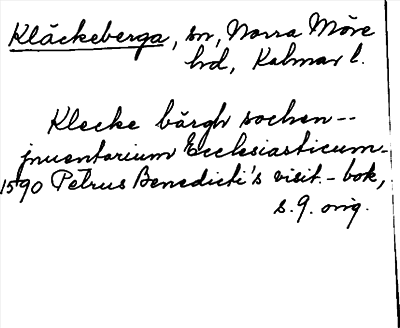 Kläckeberga, sn, Norra Möre
hd, Kalmar l.
Klecke bärgh sochen--
jnuentarium Ecclesiasticum-
1590 Petrus Benedicti's visit.-bok,
s. 9. orig.